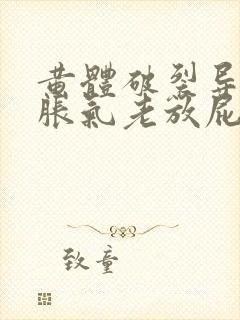 黄體破裂
脹氣老放屁
致童